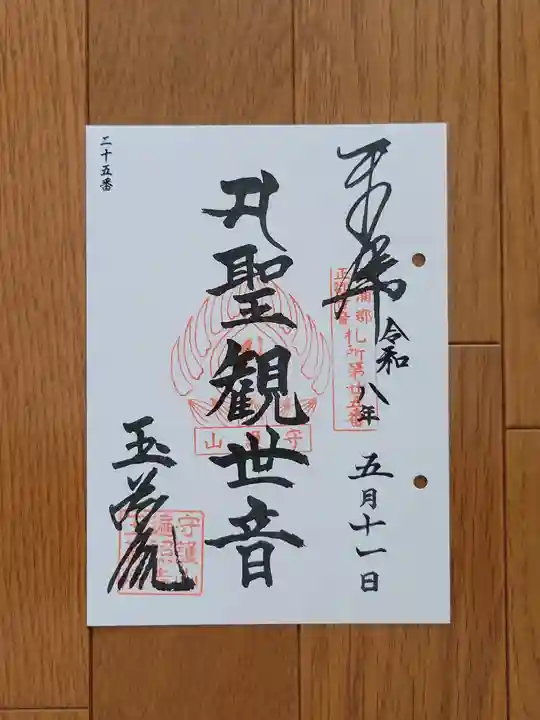 奉拝
令和八年
五月十一日
札所第廿五番
聖観世音
守
山
玉蔵院
守護山
二十五番